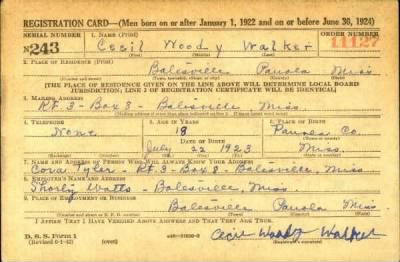 REGISTRATION CARD—(Men born on or after January 1, 1922 and on or before June 30, 1924)
SERIAL NUMBER 1. NAME (Print) ORDER NUMBER
N 243 Cecil Woody Walker 11127
(First) (Middle) (Last)
2. PLACE OF RESIDENCE (Print)
Batesville Panola Miss
(Number and street) (Town, township, village, or city) (County) (State)
[THE PLACE OF RESIDENCE GIVEN ON THE LINE ABOVE WILL DETERMINE LOCAL BOARD
JURISDICTION; LINE 2 OF REGISTRATION CERTIFICATE WILL BE IDENTICAL]
3. MAILING ADDRESS
Rt. 3 - Box 8 - Batesville, Miss.
4. TELEPHONE 5. AGE IN YEARS 6. PLACE OF BIRTH
None 18 Panola Co.
DATE OF BIRTH
July 22 1923 Miss.
7. NAME AND ADDRESS OF PERSON WHO WILL ALWAYS KNOW YOUR ADDRESS
Cora Tyler - Rt. 3 - Box 8 - Batesville, Miss.
8. EMPLOYER'S NAME AND ADDRESS
Shorty Watts - Batesville, Miss.
9. PLACE OF EMPLOYMENT OR BUSINESS
Batesville Panola Miss.
(Number and street or R. F. D. number) (Town) (County) (State)
I AFFIRM THAT I HAVE VERIFIED ABOVE ANSWERS AND THAT THEY ARE TRUE.
D. S. S. Form 1
(Revised 6-1-42) (over) Cecil Woody Walker
(Registrant's signature)